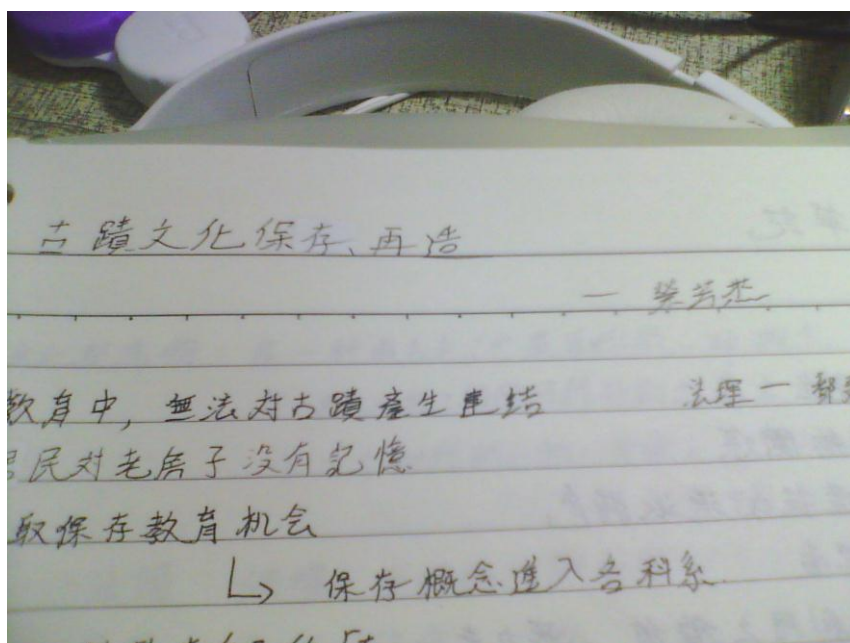 古蹟文化保存、再造
一
教育中, 無法对古蹟產生連结 法理一都
民对老房子没有記憶
取保存教育机会
↳ 保存概念進入各科系